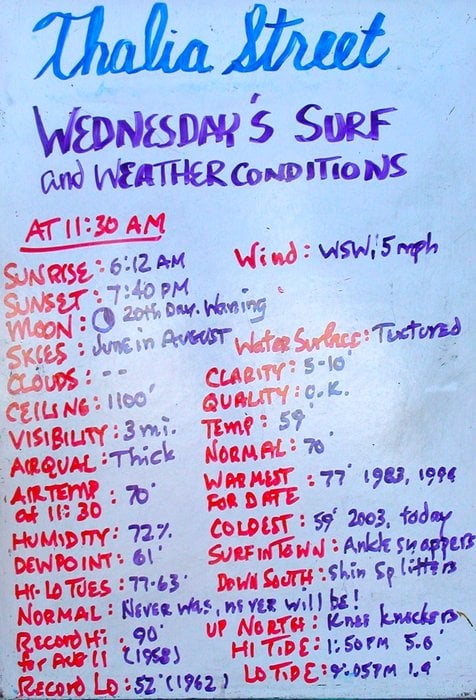 Thalia Street
WEDNESDAY'S SURF
and WEATHER CONDITIONS
AT 11:30 AM
SUNRISE: 6:12 AM
SUNSET: 7:40 PM
MOON: 20th Day. Waning
SKIES: June in AUGUST
CLOUDS: --
CEILING: 1100'
VISIBILITY: 3 mi.
AIRQUAL: Thick
AIRTEMP at 11:30: 70°
HUMIDITY: 72%
DEWPOINT: 61°
HI-LO TUES: 77-63°
NORMAL: Never was, never will be!
Record Hi for Aug 11: 90° (1958)
RECORD LO: 52° (1962)
Wind: WSW, 5 mph
Water Surface: Textured
CLARITY: 5-10'
QUALITY: O.K.
TEMP: 59°
NORMAL: 70°
WARMEST FOR DATE: 77° 1983, 1994
COLDEST: 59° 2003, today
SURF IN TOWN: Ankle snappers
DOWN SOUTH: Shin Splitters
UP NORTH: Knee knockers
HI TIDE: 1:50 PM 5.0'
LO TIDE: 9:05 PM 1.9'